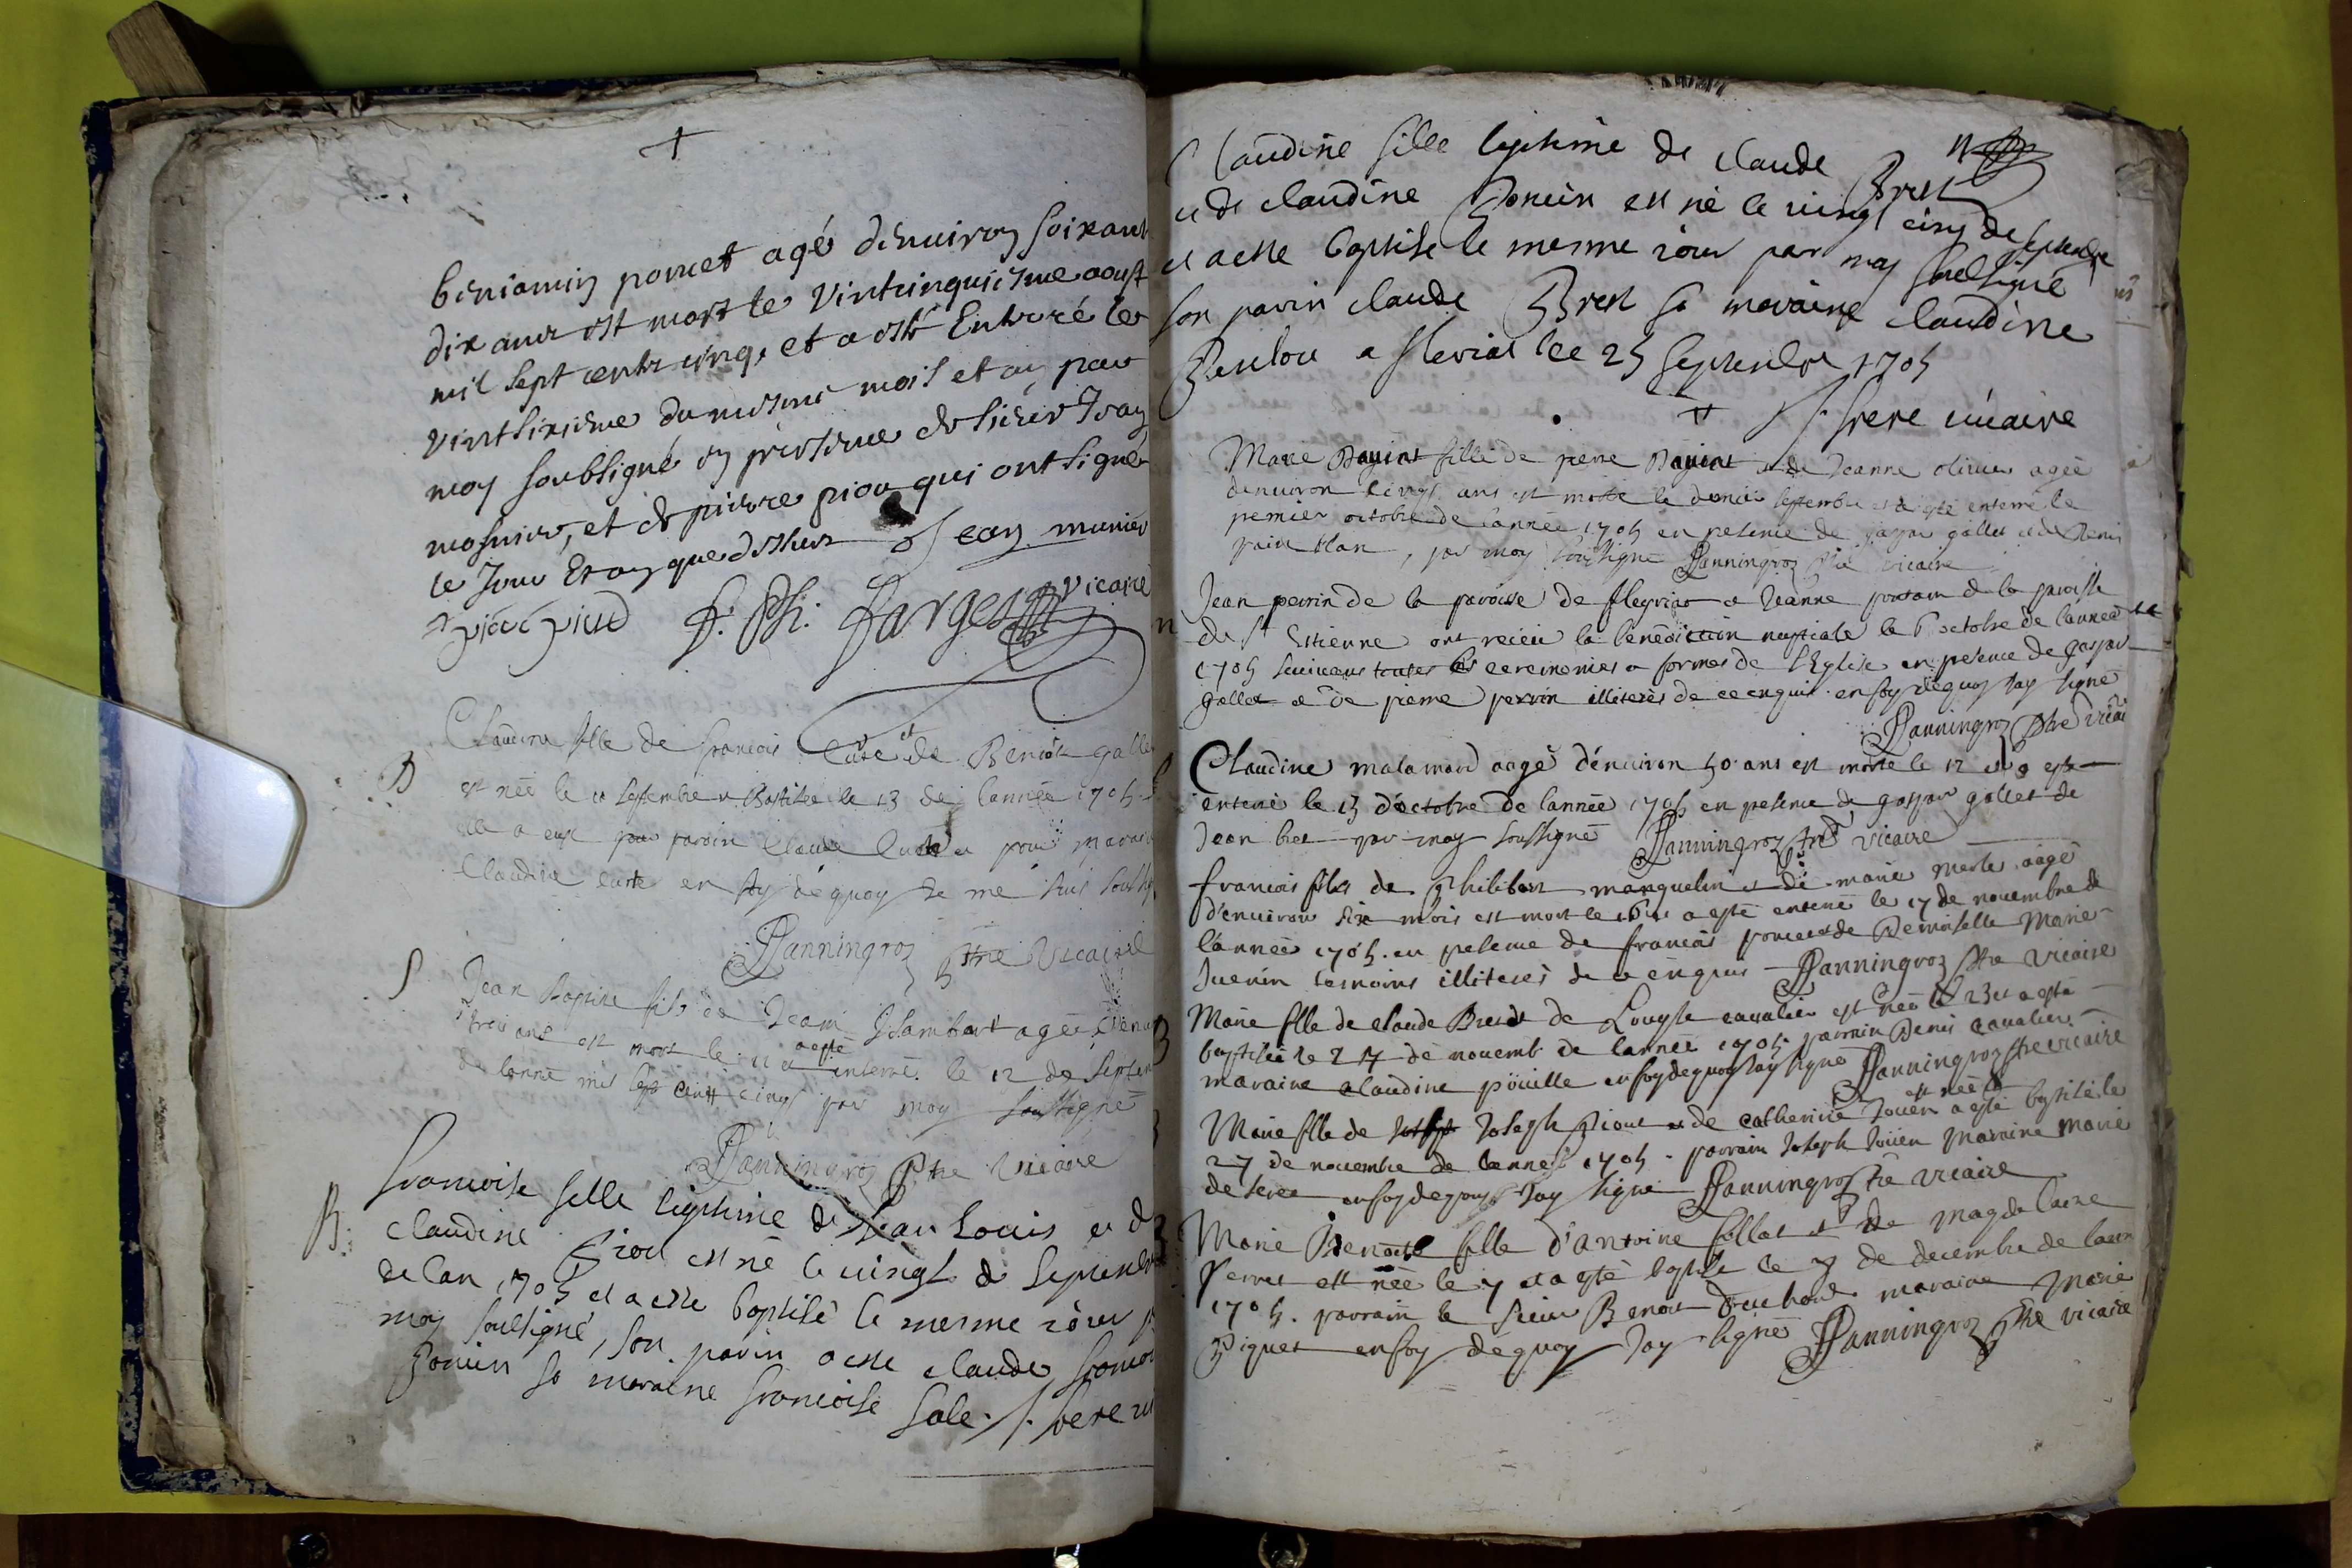 beniamin poncet agé denuiron soixant
dix ans est mort le vintcinquiesme aoust
mil sept cents cinq, et a esté Enterré le
vintsixiesme du mesme mois et an par
moy soubsigné en presence de sieur Jean
mosnier, et de pierre piou qui ont signé
le Jour Et an que dessus Jean munier
piere pioud f. Ph. farges vicaire
Claudine fille de francois Curt et de Benoite galle
B est née le 11 septembre et Baptisée le 13 de lannée 1705
elle a eust pour paroin Claude Curt et pour maraine
Claudine curt en foy dequoy Je me suis soussig
Janningroz ptre Vicaire
S Jean Baptiste fils de Jean Lambert agée denui
trois ans est mort le 11 et a esté enterré le 12 de septem
de lanne mil sept cent cinq par moy soussigné
Janningroz Ptre Vicaire
B. francoise fille ligitime de Jean Louis et d
claudine Piou est né le vingt de septembr
de lan 1705 et a este baptisé le mesme iour p
moy soussigné, son parin a este claude francoi
Poncin sa maraine francoise Sale. f. frere vi
Claudine fille ligitime de claude Brest
et de claudine Poncin est né le vingt cinq de septembre
et a este baptisé le mesme iour par moy soussigné
son parin claude Brest sa maraine claudine
a fleriat le 25 septembre 1705
f. frere vicaire
Marie Bayiat fille de pierre Bayiat et de Jeanne oliuier agée
denuiron vingt ans est morte le dernier septembre et a esté enterré le
premier octobre de lannée 1705 en presence de gaspar gallet et de Denis
, par moy soussigné Janningroz ptre vicaire
Jean perrin de la paroisse de fleyriat et Jeanne de la paroisse
de St Estienne ont receu la bénédiction nuptiale le 6 octobre de lannée
1705 suiuant toutes les ceremonies et formes de l'Eglise en presence de gaspar
gallet et de pierre perrin illiterés de ce enquis. en foy dequoy Jay signé
Janningroz Ptre vicai
Claudine malamard aagé dénuiron 50 ans est morte le 12 et a esté
enterré le 13 d'octobre de lannée 1705 en presence de gaspar gallet de
Jean bret par moy soussigné Janningroz ptre vicaire
francois fils de philibert manguelin et de marie merle aagé
d'enuiron six mois est mort le 16 et a esté enterré le 17 de nouembre de
lannée 1705. en presence de francois poncet et de Demoiselle Marie
Juenin temoins illiterés de ce enquis Janningroz Ptre Vicaire
Marie fille de claude Bret et de Louyse caualier est née le 23 et a esté
baptisée le 24 de nouemb. de lannée 1705. parrain Denis caualier
maraine claudine pöuille en foy dequoy Jay signé Janningroz ptre vicaire
est née le
Marie fille de Joseph Piout et de catherine Jouen a esté baptisé le
27 de nouembre de lannee 1705. parrain Joseph Joüen Maraine Marie
deseree en foy dequoy Jay signé Janningroz ptre vicaire
Marie Benoiste fille d'antoine follet et de magdelaine
ferret est née le 7 et a esté baptisé le 7 de decembre de lann
1705. parrain le sieur Benoit maraine Marie
Piquet en foy dequoy Jay signé Janningroz Ptre vicaire